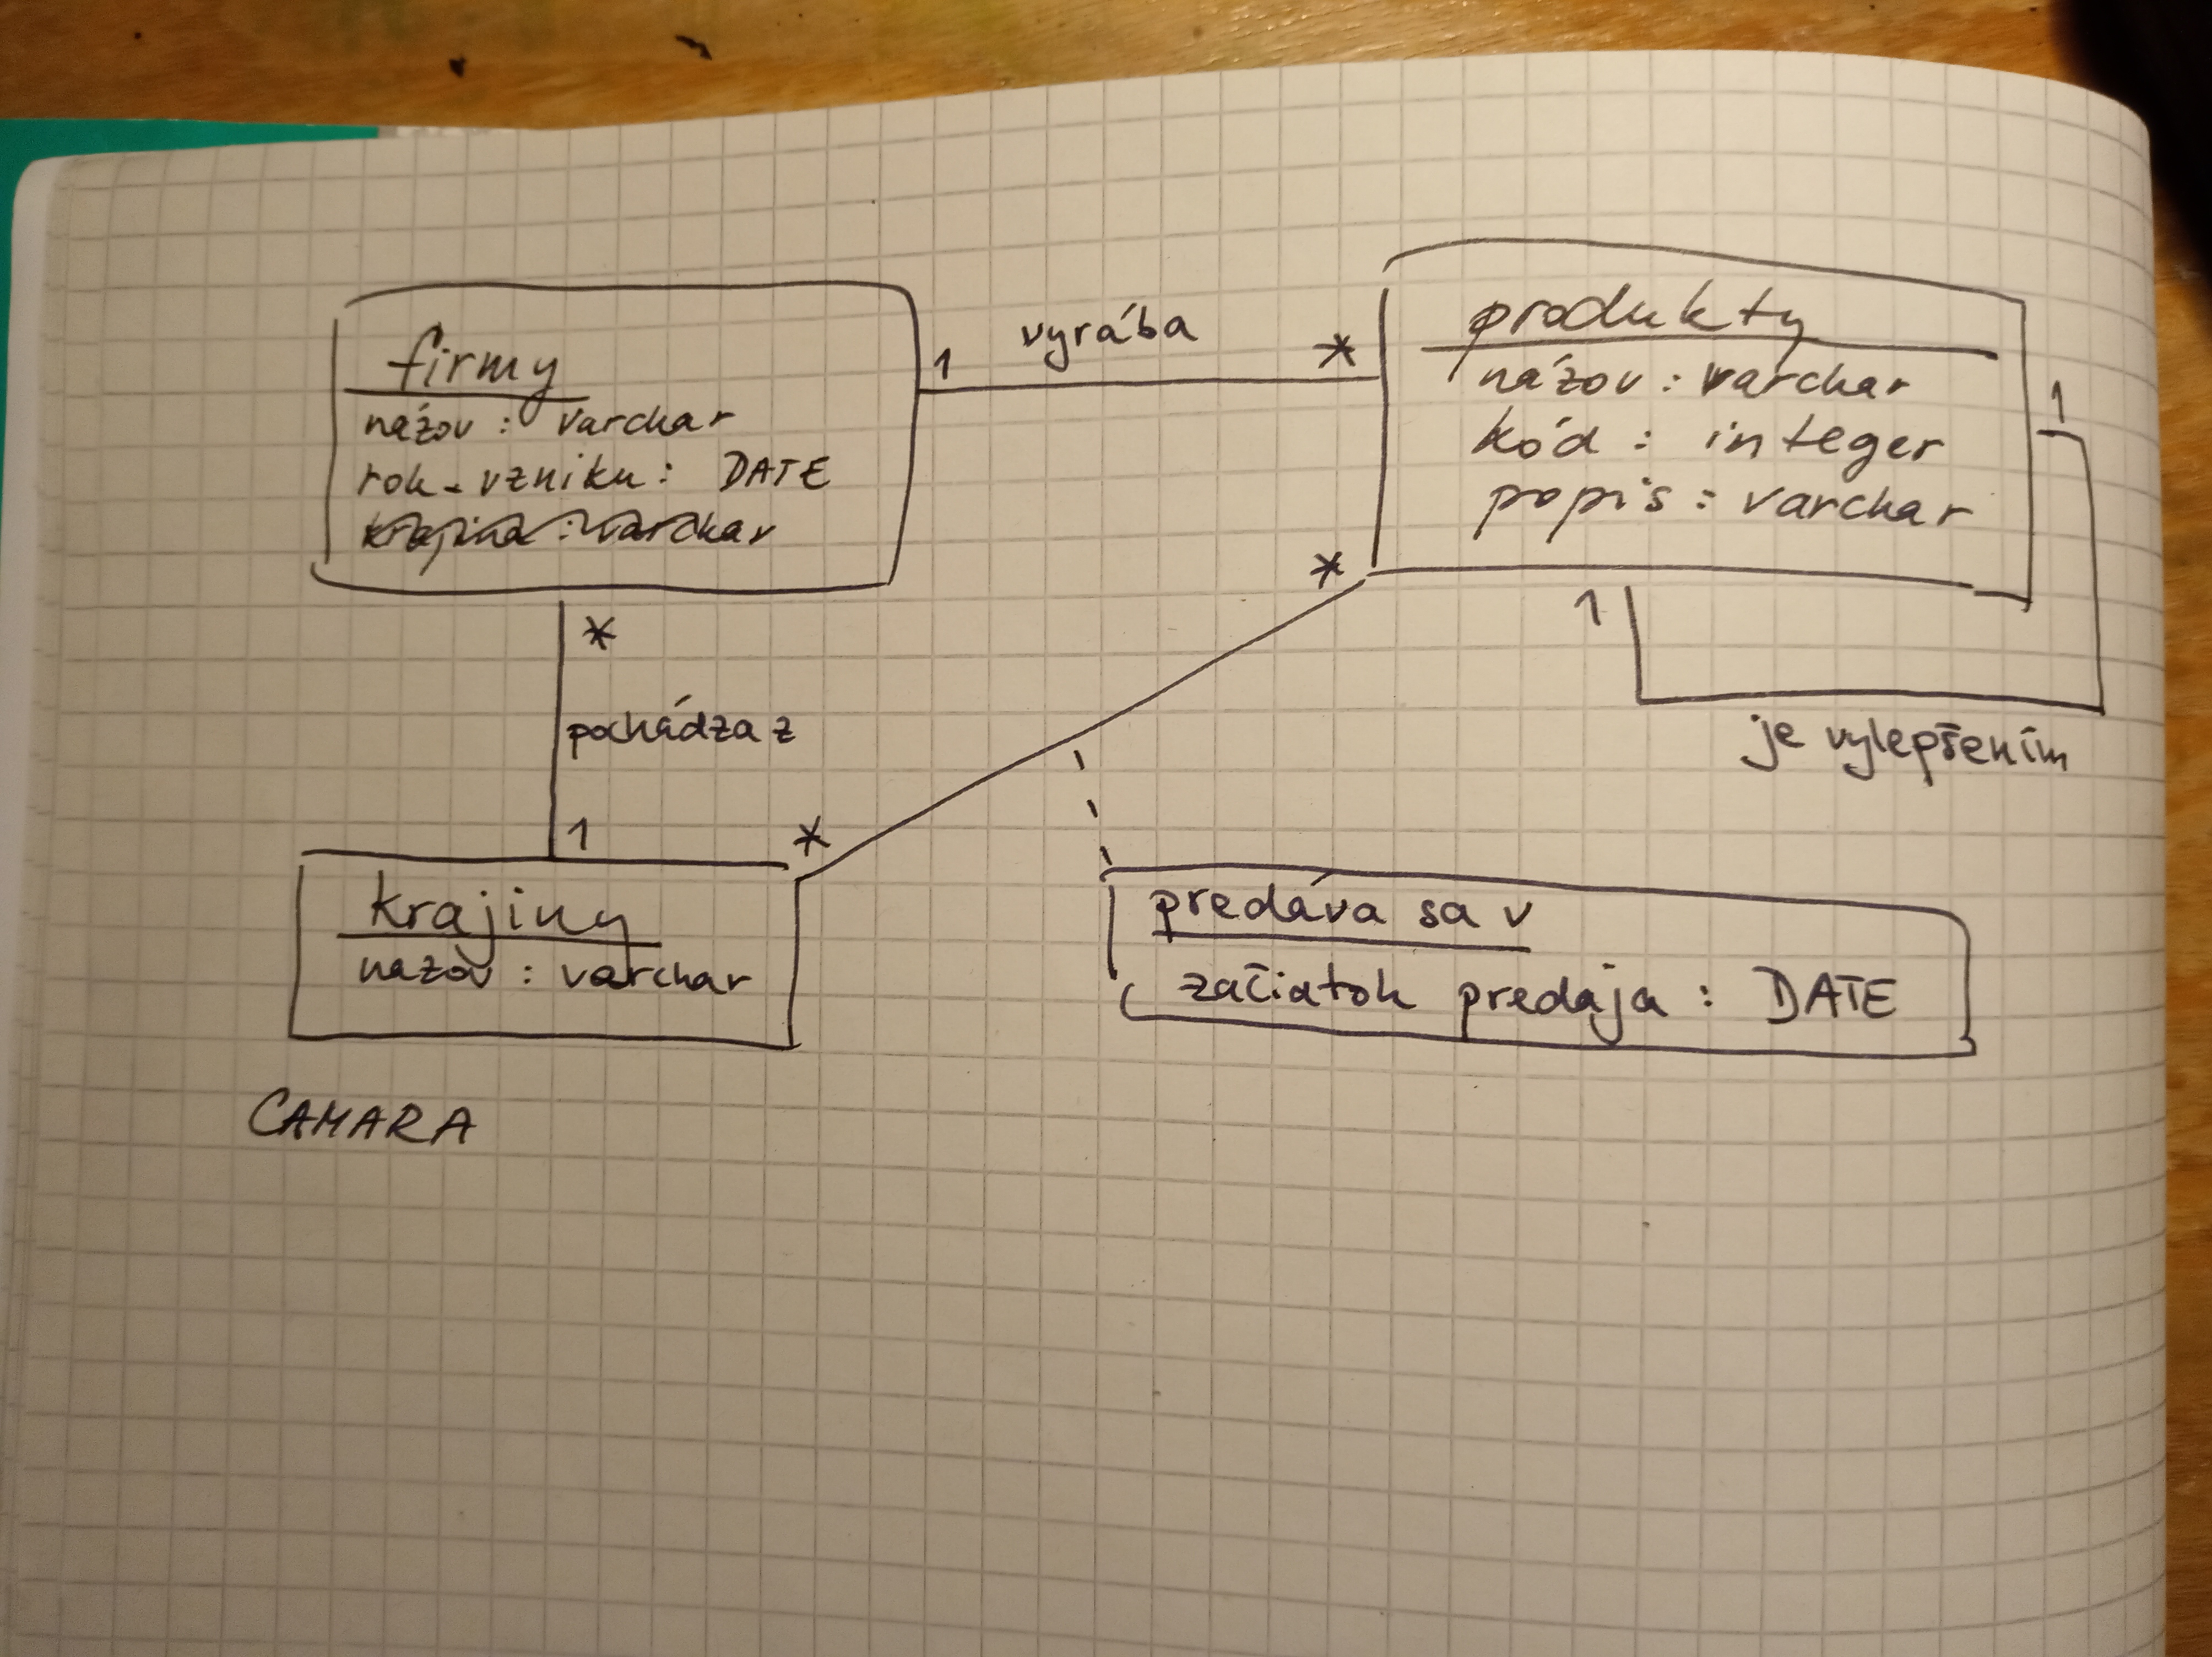 firmy
názov : varchar
rok_vzniku : DATE
krajina : varchar
1 vyrába *
produkty
názov : varchar
kód : integer
popis : varchar
1
1
je vylepšením
*
pochádza z
1
*
*
krajiny
názov : varchar
predáva sa v
začiatok predaja : DATE
CAMARA